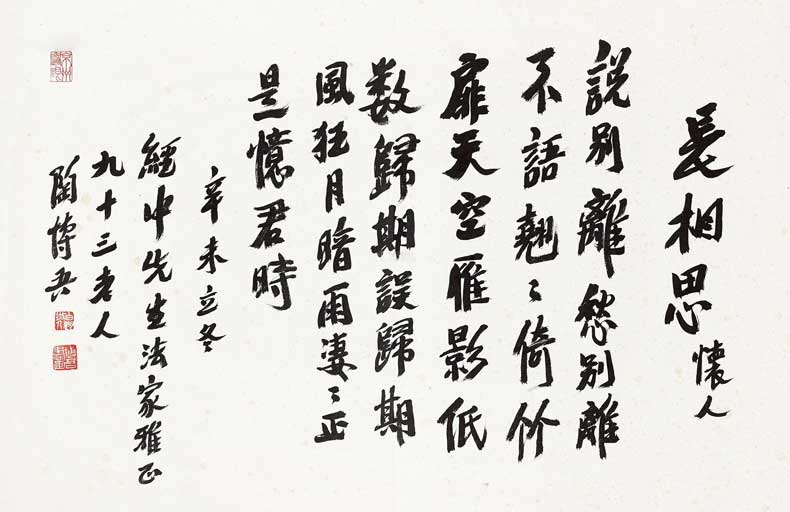 長相思 懷人
説別離愁別離
不語翹〻倚竹
扉天空雁影低
数歸期設歸期
風狂月暗雨凄〻正
是憶君時
辛未立冬
經中先生法家雅正
九十三老人
陶博吾